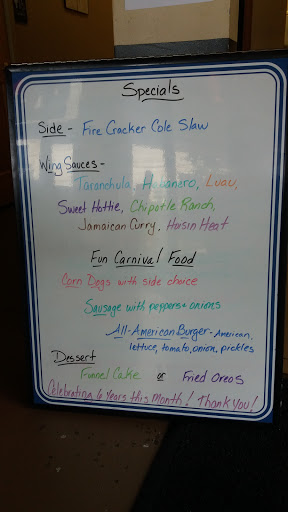 Specials
Side - Fire Cracker Cole Slaw
Wing Sauces -
Taranchula, Habanero, Luau,
Sweet Hottie, Chipotle Ranch,
Jamaican Curry, Hoisin Heat
Fun Carnival Food
Corn Dogs with side choice
Sausage with peppers & onions
All-American Burger - American,
lettuce, tomato, onion, pickles
Dessert
Funnel Cake or Fried Oreos
Celebration 6 Years this Month! Thank You!